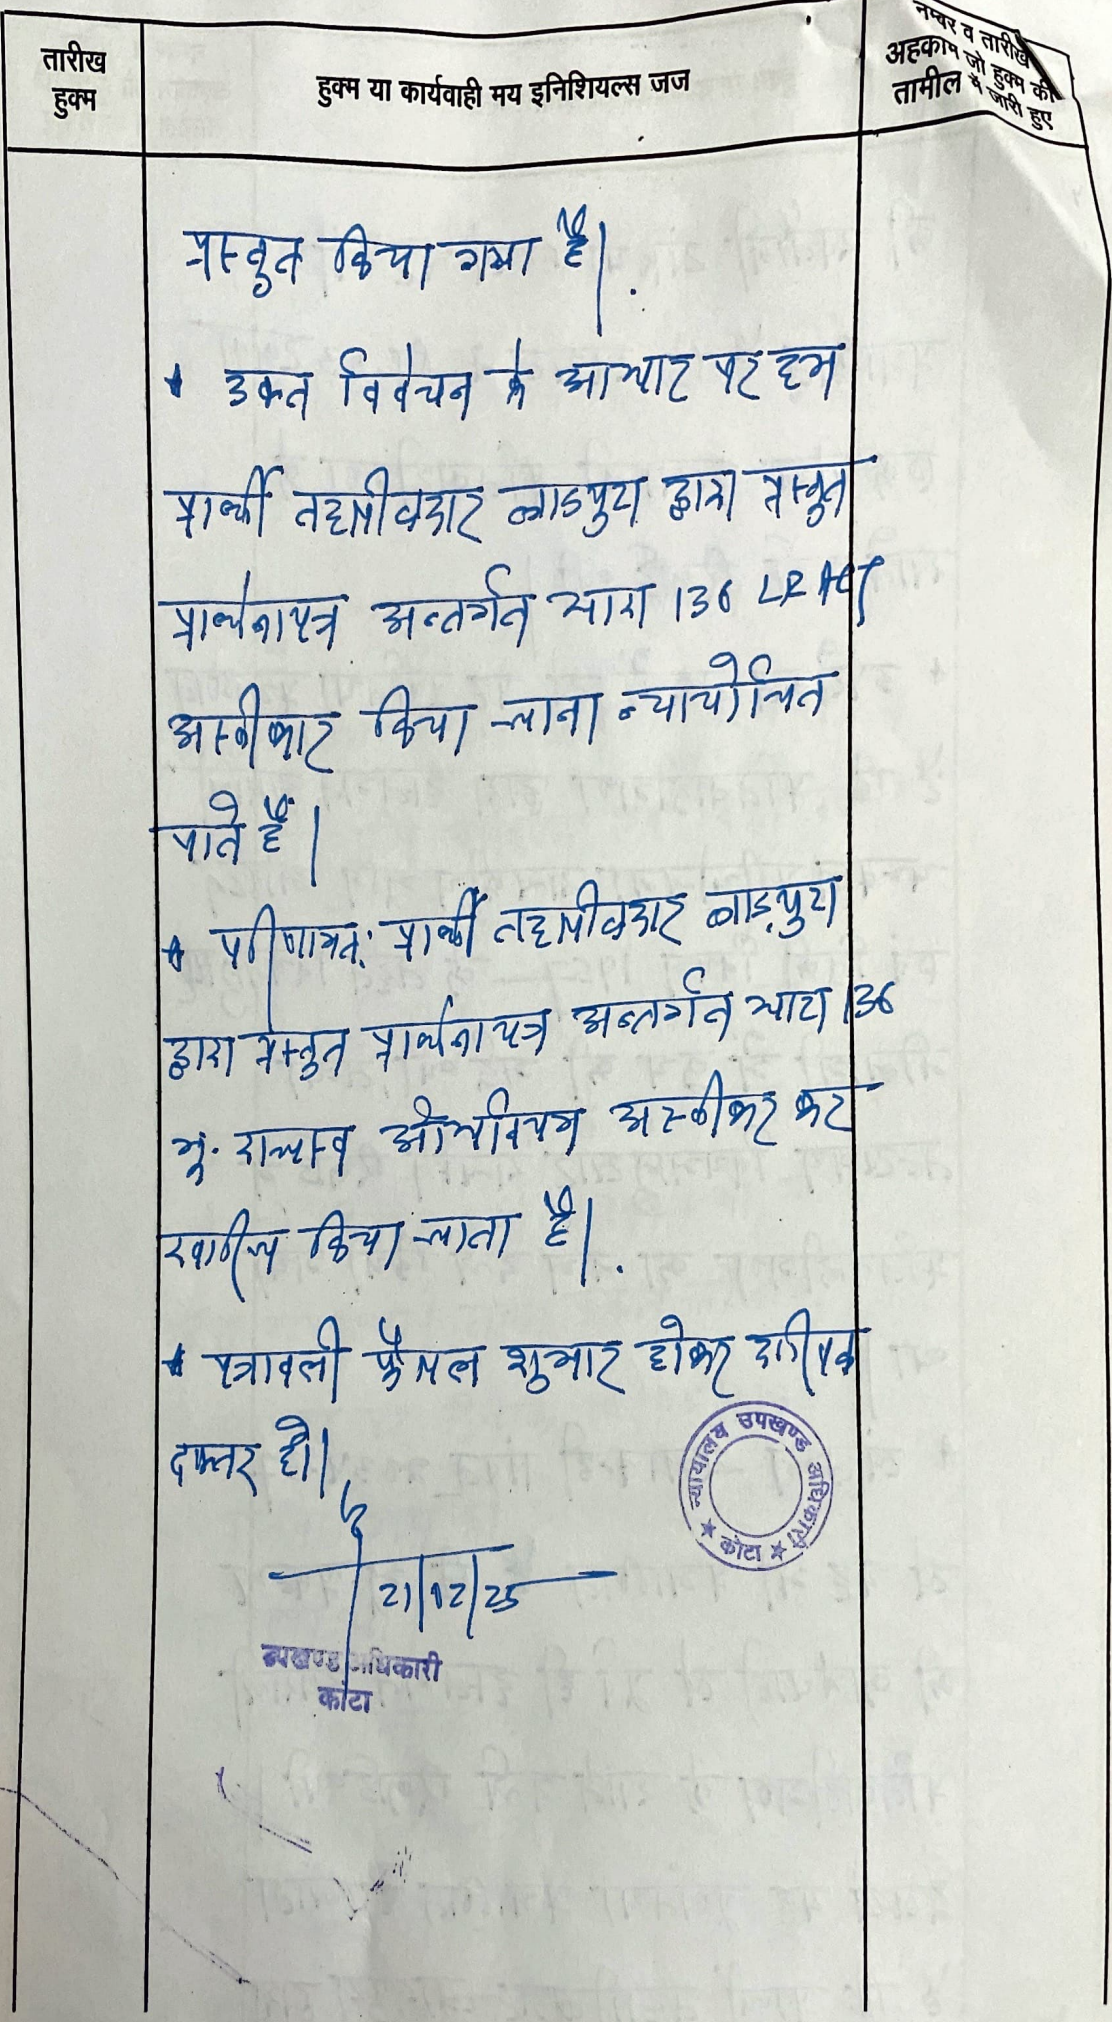 तारीख
हुक्म
हुक्म या कार्यवाही मय इनिशियल्स जज
नम्बर व तारीख
अहकाम जो हुक्म की
तामील में जारी हुए
प्रस्तुत किया गया है।
* उक्त विवेचन के आधार पर हम
प्रार्थी तहसीलदार लाडपुरा द्वारा प्रस्तुत
प्रार्थनापत्र अन्तर्गत धारा 136 LR Act
अस्वीकार किया जाना न्यायोचित
पाते हैं।
* परिणामत: प्रार्थी तहसीलदार लाड़पुरा
द्वारा प्रस्तुत प्रार्थनापत्र अन्तर्गत धारा 136
भू. राजस्व अधिनियम अस्वीकार कर
खारिज किया जाता है।
* पत्रावली फैसल शुमार होकर दाखिल
दफ्तर हो।
न्यायालय उपखण्ड अधिकारी
★ कोटा ★
21/12/25
उपखण्ड अधिकारी
कोटा